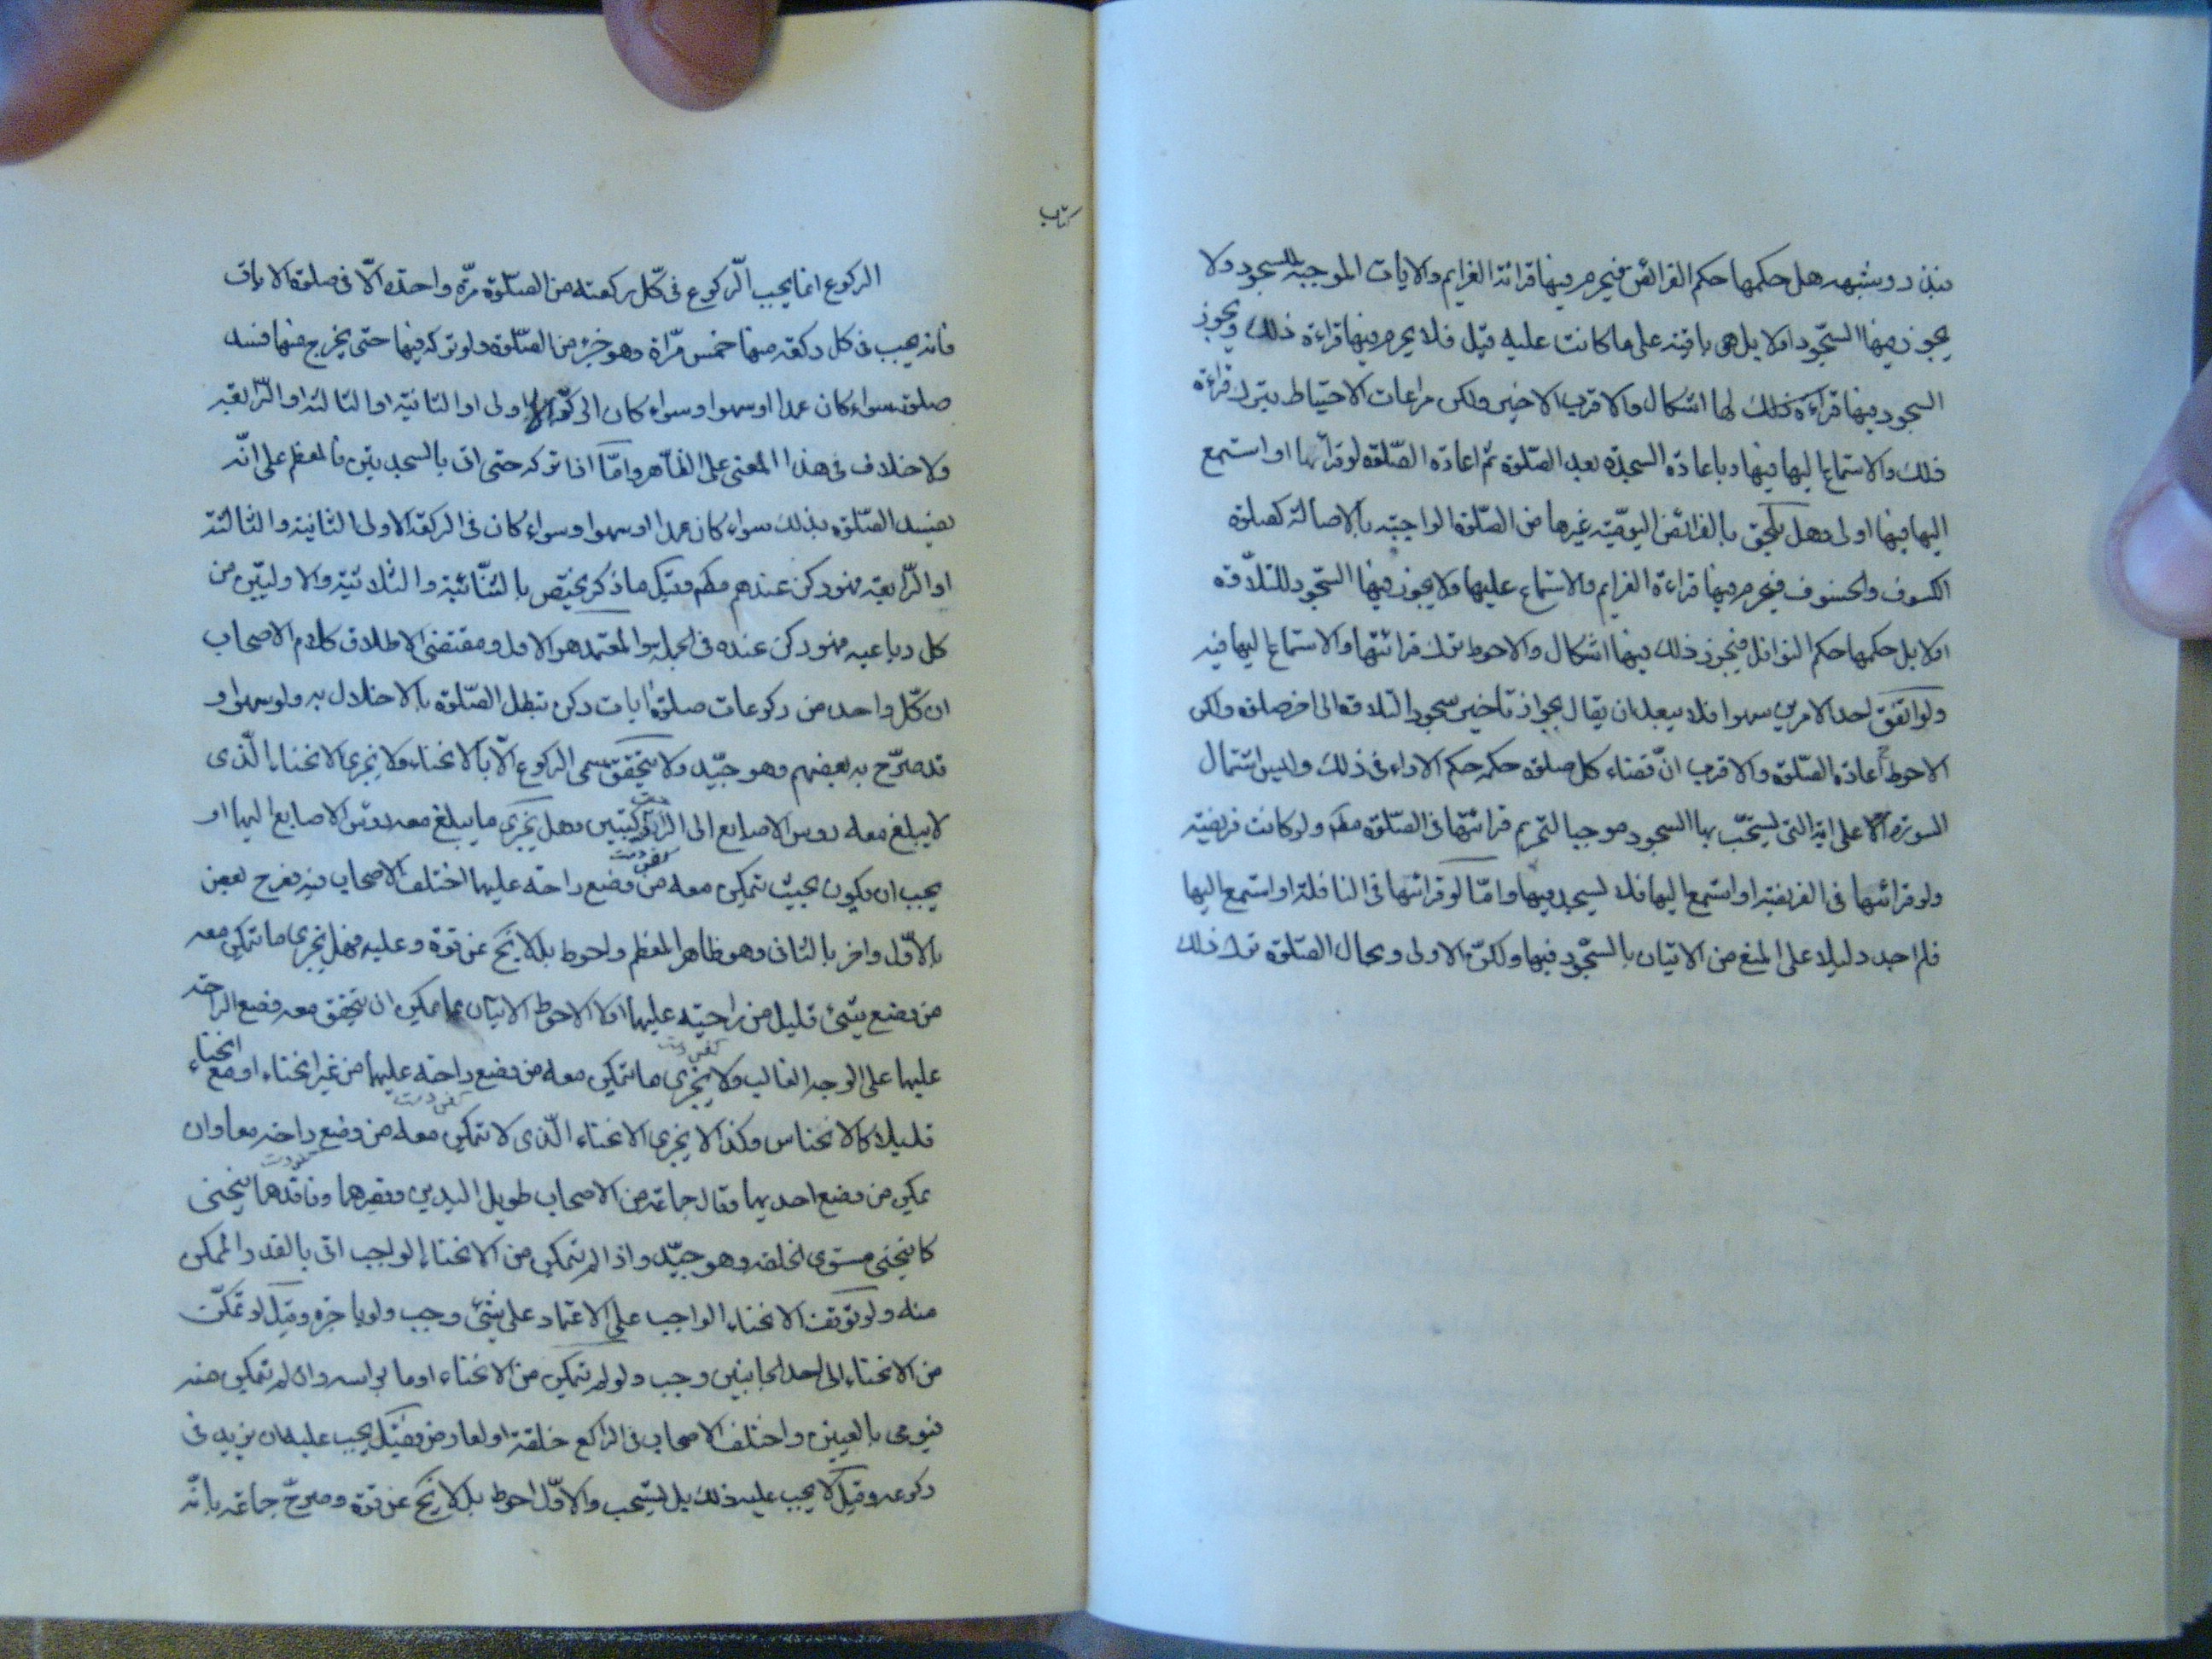 بنذر وشبهه هل حكمها حكم الفرائض فيحرم فيها قرائة العزايم والايات الموجبة للسجود ولا
يجوز فيها السّجود اولا بل هى باقية على ما كانت عليه قبل فلا يحرم فيها قراءة ذلك ويجوز
السجود فيها قراءة ذلك لها اشكال والاقرب الاخير ولكن مراعات الاحتياط بترك قراءة
ذلك والاستماع اليها فيها وباعادة السجدة بعد الصّلوة ثم اعادة الصّلوة لو قرائها او استمع
اليها فيها اولى وهل يلحق بالفرائض اليوميّة غيرها من الصّلوة الواجبة بالاصالة كصلوة
الكسوف والخسوف فيحرم فيها قراءة العزايم والاستماع عليها ولا يجوز فيها السّجود للتلاوة
اولا بل حكمها حكم النوافل فيجوز ذلك فيها اشكال والاحوط ترك قرائتها والاستماع اليها فيه
ولو اتفق احد الامرين سهوا فلا يبعد ان يقال بجواز تأخير سجود التلاوة الى اخر صلوة ولكن
الاحوط اعادة الصّلوة والاقرب انّ قضاء كل صلوة حكمه حكم الاداء فى ذلك وليس اشتمال
السورة على اية التى يستحبّ بها السجود موجبا لتحريم قرائتها فى الصّلوة مطم ولو كانت فريضة
ولو قرائتها فى الفريضة او استمع اليها فلا يسجد فيها وامّا لو قرائتها فى النافلة او استمع اليها
فلم اجد دليلا على المنع من الاتيان بالسّجود فيها ولكنّ الاولى وبحال الصّلوة ترك ذلك
كتاب
الركوع انما يجب الرّكوع فى كلّ ركعته من الصّلوة مرّة واحدة الّا فى صلوة الايات
فانه يجب فى كل ركعة منها خمس مرّاة وهو جزء من الصّلوة ولو تركه فيها حتى يخرج منها فسد
صلوته سواء كان عمدا او سهوا وسواء كان الركعة الاولى او الثانية او الثالثة او الرّابعة
ولا خلاف فى هذا المعنى على الظّاهر وامّا اذا تركه حتى اتى بالسجدتين فالمعظم على انّه
يفسد الصّلوة بذلك سواء كان عمدا او سهوا وسواء كان فى الركعة الاولى الثانية والثالثة
او الرّابعة فهو ركن عندهم مطم وقيل ما ذكر يختص بالثنّائية والثلاثية والاوليّين من
كل رباعيه فهو ركن عنده فى الجملة والمعتمد هو الاول ومقتضى الاطلاق كلام الاصحاب
ان كلّ واحد من ركوعات صلوة ايات ركن تبطل الصّلوة بالاخلال به ولو سهوا و
قد صرّح به بعضهم وهو جيّد ولا يتحقق مسمى الركوع الّا بالانحناء ولا يجزى الانحناء الّذى
لا يبلغ معه روس الاصابع الى الركبتين وهل يجزى ما يبلغ معه روس الاصابع اليها او
يجب ان يكون بحيث يتمكن معه من وضع راحته عليها اختلف الاصحاب فيه فصرح بعض
بالاوّل واخر بالثانى وهو ظاهر المعظم واحوط بل لا يخ عن قوة وعليه فهل يجزى ما يتمكن معه
من وضع شئ قليل من راحيته عليها اولا الاحوط الاتيان بما يمكن ان يتحقق معه وضع الراحته
عليها على الوجه الغالب ولا يجزى ما يتمكن معه من وضع راحته عليها من غير انحناء او مع انحناء
قليلا كالانخناس وكذا لا يجزى الانحناء الّذى لا يتمكن معه من وضع راحته معا وان
يمكن من وضع احديهما وقال جماعة من الاصحاب طويل اليدين وقصيرهما وفاقدهما ينحنى
كما ينحنى مستوى الخلقه وهو جيّد واذا لم يتمكن من الانحناء الواجب اتى بالقدر الممكن
منه ولو توقف الانحناء الواجب على الاعتماد على شئ وجب ولو باجزه وقيل لو تمكّن
من الانحناء الى احد الجانبين وجب ولو لم يتمكن من الانحناء اوما براسه وان لم يتمكن منه
فيومى بالعينه واختلف الاصحاب فى الراكع خلقة او لعارض فقيل يجب عليه ان يزيد فى
ركوعه وقيل لا يجب عليه ذلك بل يستحب والاوّل احوط بل لا يخ عن قوة وصرح جماعة بانّه